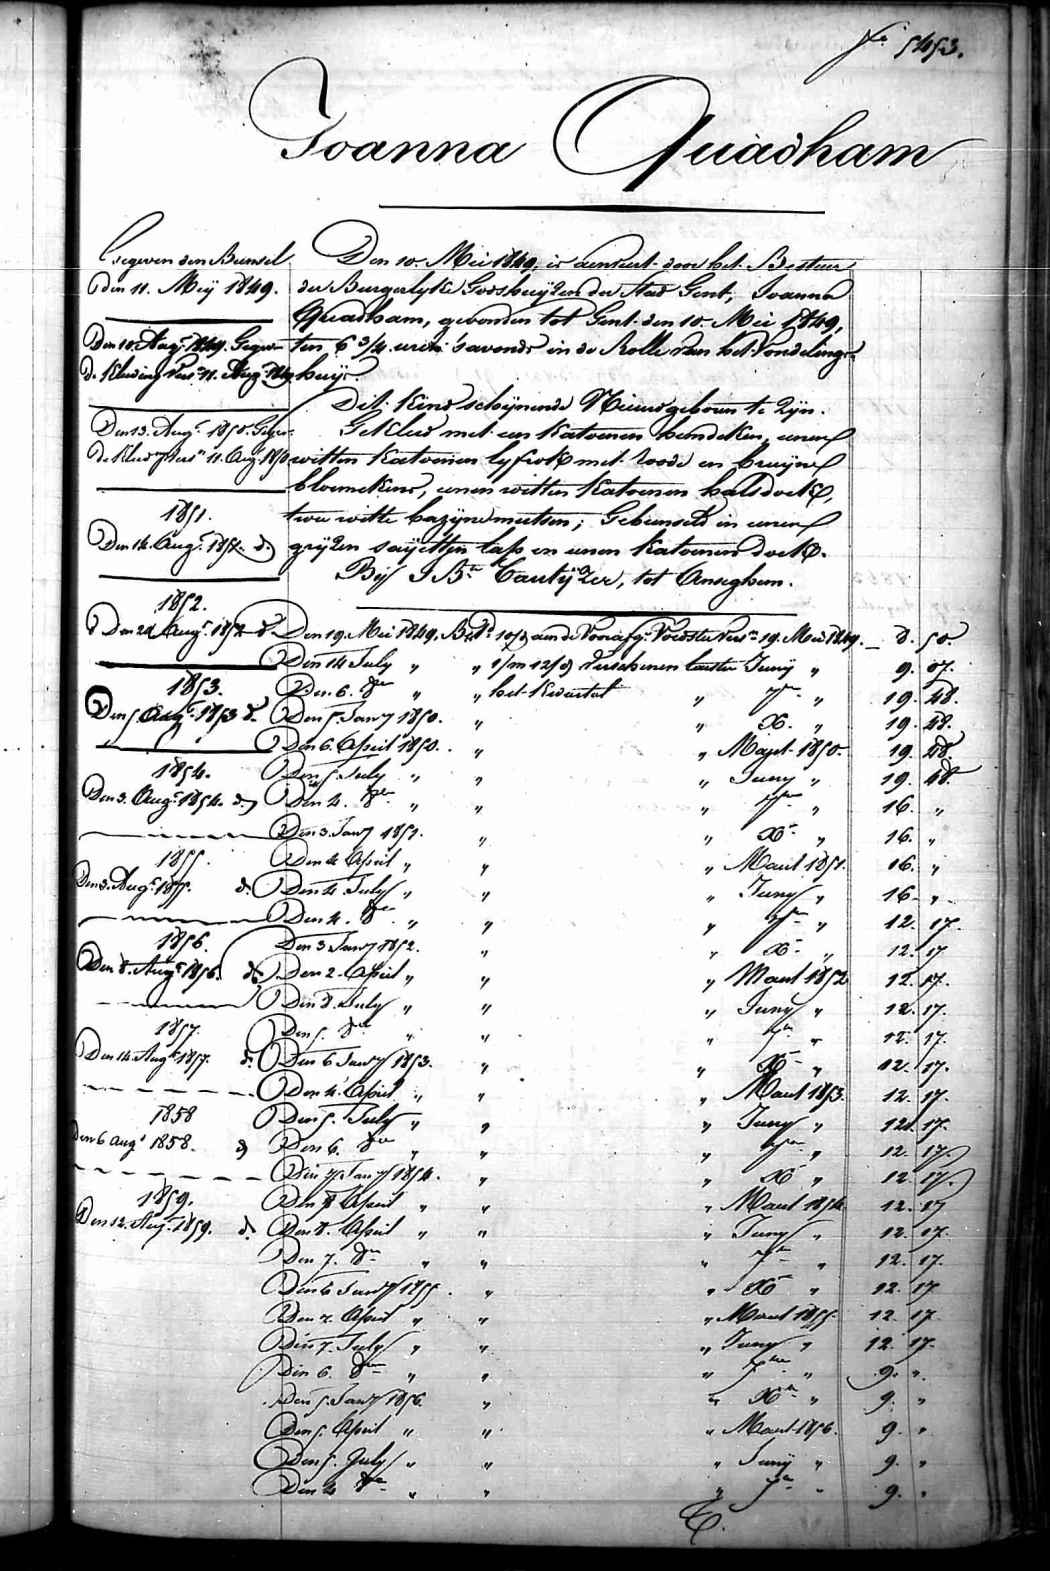 fo 5453.
Joanna Quadham
Gegeven den Bunsel
den 11. Meÿ 1849.
Den 10. Aug. 1849. Gegeven
de Kleeding vers. 11. Aug. 1849
Den 13. Aug. 1850. Gegev.
de Kleed vers. 11. Aug. 1850
1851.
Den 14. Aug. 1851. do
1852.
Den 24 Aug. 1852 do
1853.
Den 5 Aug. 1853 do
1854.
Den 3. Aug. 1854. do
1855.
Den 3. Aug. 1855. do
1856.
Den 8. Aug. 1856. do
1857.
Den 14. Aug. 1857. do
1858
Den 6 Aug. 1858. do
1859.
Den 12. Aug. 1859. do
Den 10. Mei 1849, is aenveert door het Bestuer
der Burgerlyke Godshuÿzen der Stad Gent, Joanna
Quadham, gevonden tot Gent den 10. Mei 1849,
ten 6 3/4 uren 's avonds in de Rolle van het Vondelings-
huÿs.
Dit kind schynende Nieuwgeboren te Zyn.
Gekleed met een katoenen hemdeken, eenen
witten katoenen lyfrok met roode en bruyne
bloemekens, eenen witten katoenen halsdoek,
twee witte bazÿne mutsen; Gebunseld in eenen
gryzen saÿetten lap en eenen katoenen doek.
Bÿ J. Bte , tot Anseghem.
Den 19. Mei 1849. aen de Voorafg. Voedster vers. 19. Mei 1849. 8. 50.
Den 14 July " " verschenen laeste Juny " 9. 07.
Den 6. 8er " " het Kwartael " 7er " 19. 28.
Den 5. Jany 1850. " " X. " 19. 28.
Den 6. April 1850. " " Maert 1850. 19. 28.
Den 5. July " " " Juny " 19. 28.
Den 4. 8er " " " 7er " 16. "
Den 3. Jany 1851. " " Xr " 16. "
Den 4 April " " " Maert 1851. 16. "
Den 4 July " " " Juny " 16. "
Den 4. 8er " " " 7er " 12. 17.
Den 3 Jany 1852. " " Xr " 12. 17
Den 2. April " " " Maert 1852 12. 17.
Den 8. July " " " Juny " 12. 17.
Den 5. 8er " " " 7er " 12. 17.
Den 6 Jany 1853. " " Xr " 12. 17.
Den 4. April " " " Maert 1853. 12. 17.
Den 5. July " " " Juny " 12. 17.
Den 6. 8er " " " 7er " 12. 17.
Den 7. Jany 1854. " " Xr " 12. 17.
Den April " " " Maert 1854. 12. 17
Den 8. April " " " Juny " 12. 17.
Den 7. 8er " " " 7er " 12. 17.
Den 6 Jany 1855. " " Xr " 12. 17
Den 7. April " " " Maert 1855. 12. 17.
Den 7. July " " " Juny " 12. 17.
Den 6. 8er " " " 7er " 9. "
Den 5. Jany 1856. " " Xr " 9. "
Den 5. April " " " Maert 1856. 9. "
Den 5. July " " " Juny " 9. "
Den 4 8er " " " 7er " 9. "